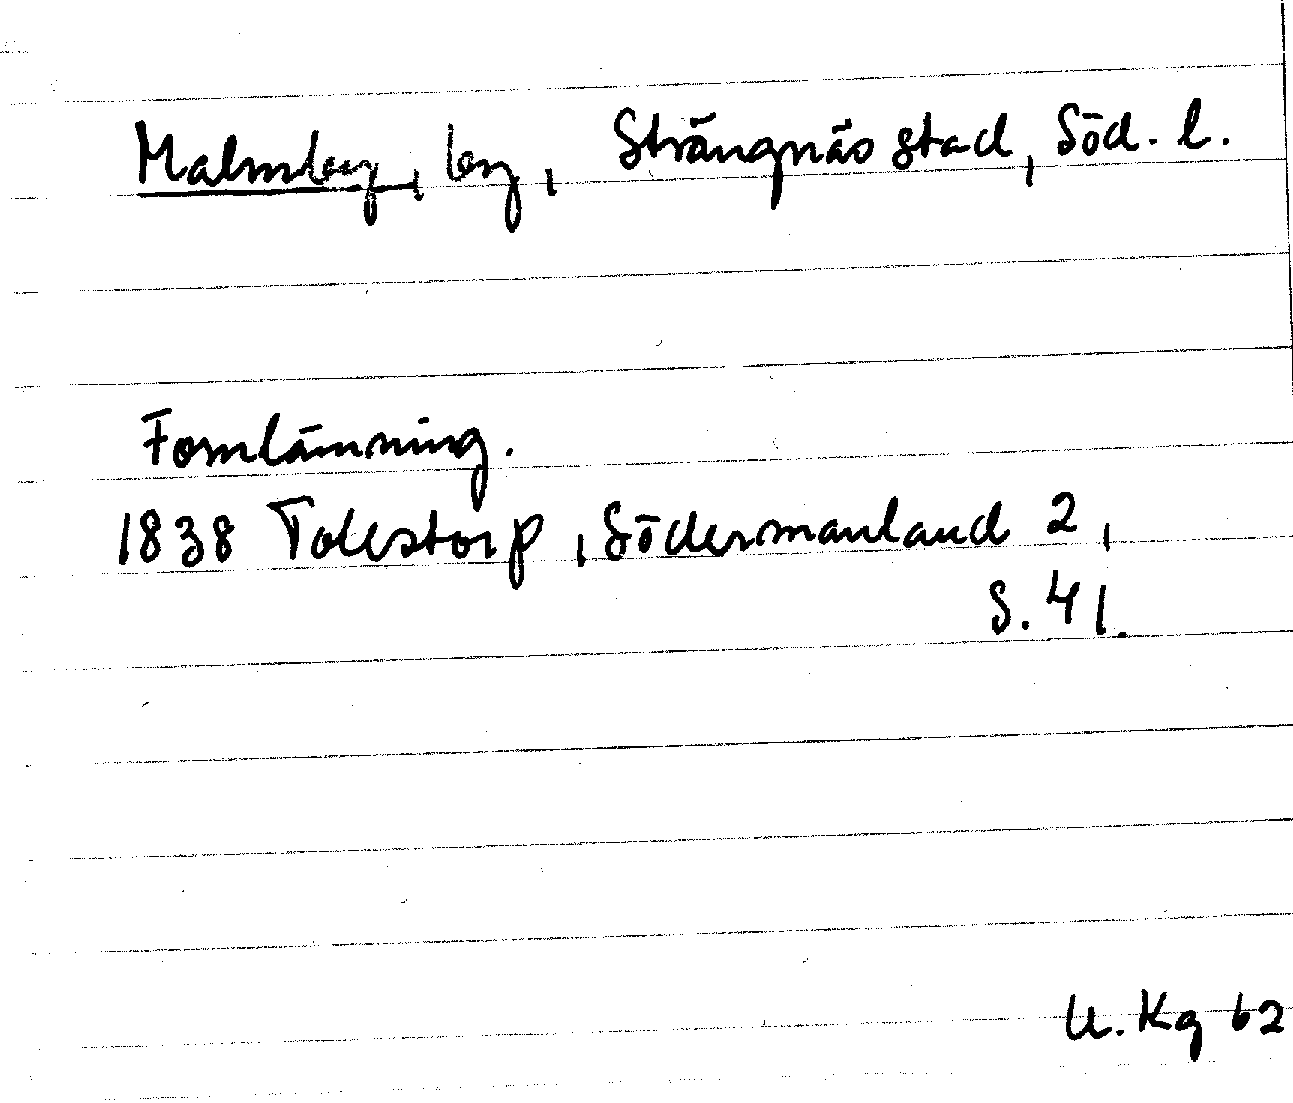 Malmby, by, Strängnäs stad, Söd. l.
Fornlämning.
1838 Tollstorp, Södermanland 2,
S. 41.
U. Kg 62